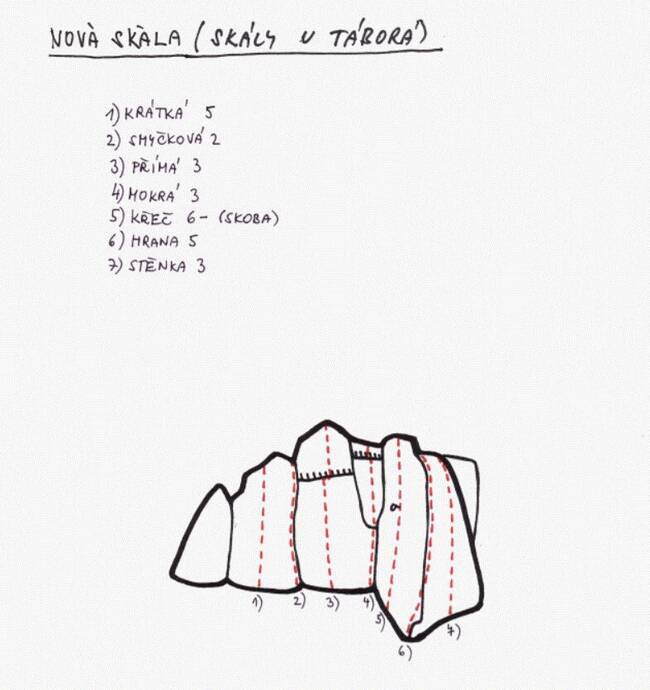 NOVÁ SKÁLA (SKÁLY U TÁBORA)
1) KRÁTKÁ 5
2) SMYČKOVÁ 2
3) PŘÍMÁ 3
4) MOKRÁ 3
5) KŘEČ 6- (SKOBA)
6) HRANA 5
7) STĚNKA 3
1) 2) 3) 4)
5)
6)
7)